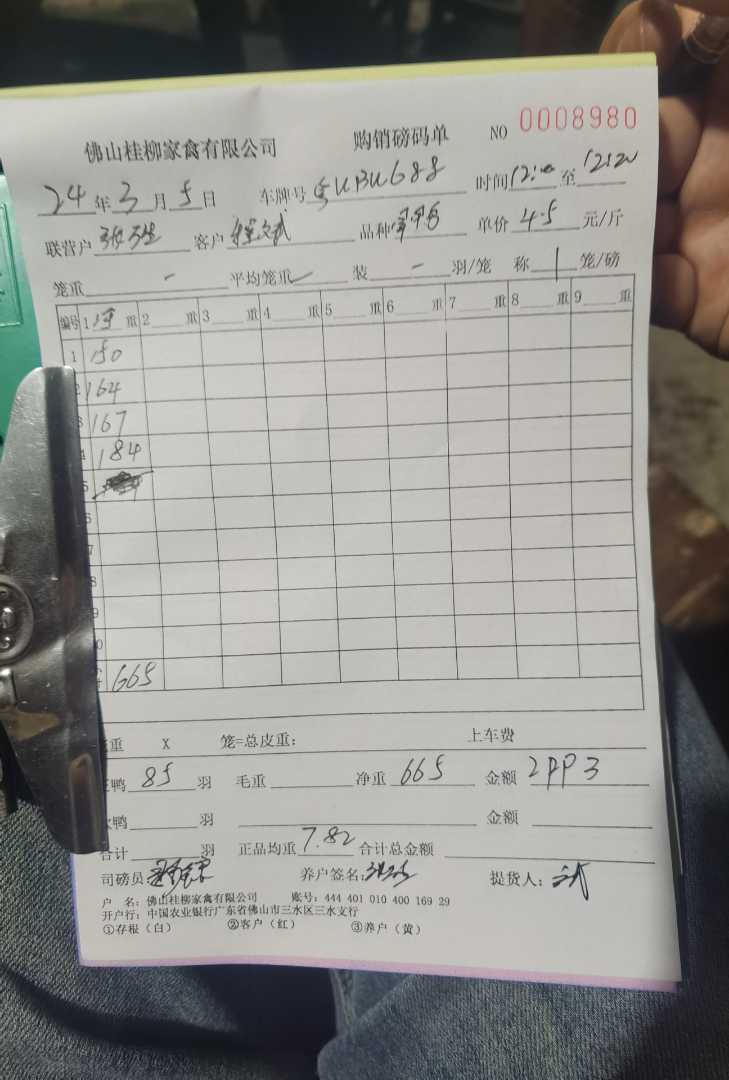 佛山桂柳家禽有限公司 购销磅码单 NO 0008980
24年3月5日 车牌号 UBU688 时间12:00至12:20
联营户 客户 品种 单价4.5元/斤
笼重 - 平均笼重 装 - 羽/笼 称 1 笼/磅
编号 1 净重 2 重 3 重 4 重 5 重 6 重 7 重 8 重 9 重
1 150
2 164
3 167
4 184
5
6
7
8
9
0
665
重 X 笼=总皮重: 上车费
鸭 85 羽 毛重 净重 665 金额 2993
鸭 羽 金额
合计 羽 正品均重 7.82 合计总金额
司磅员: 养户签名: 提货人:
户 名: 佛山桂柳家禽有限公司 账号: 444 401 010 400 169 29
开户行: 中国农业银行广东省佛山市三水区三水支行
①存根(白) ②客户(红) ③养户(黄)